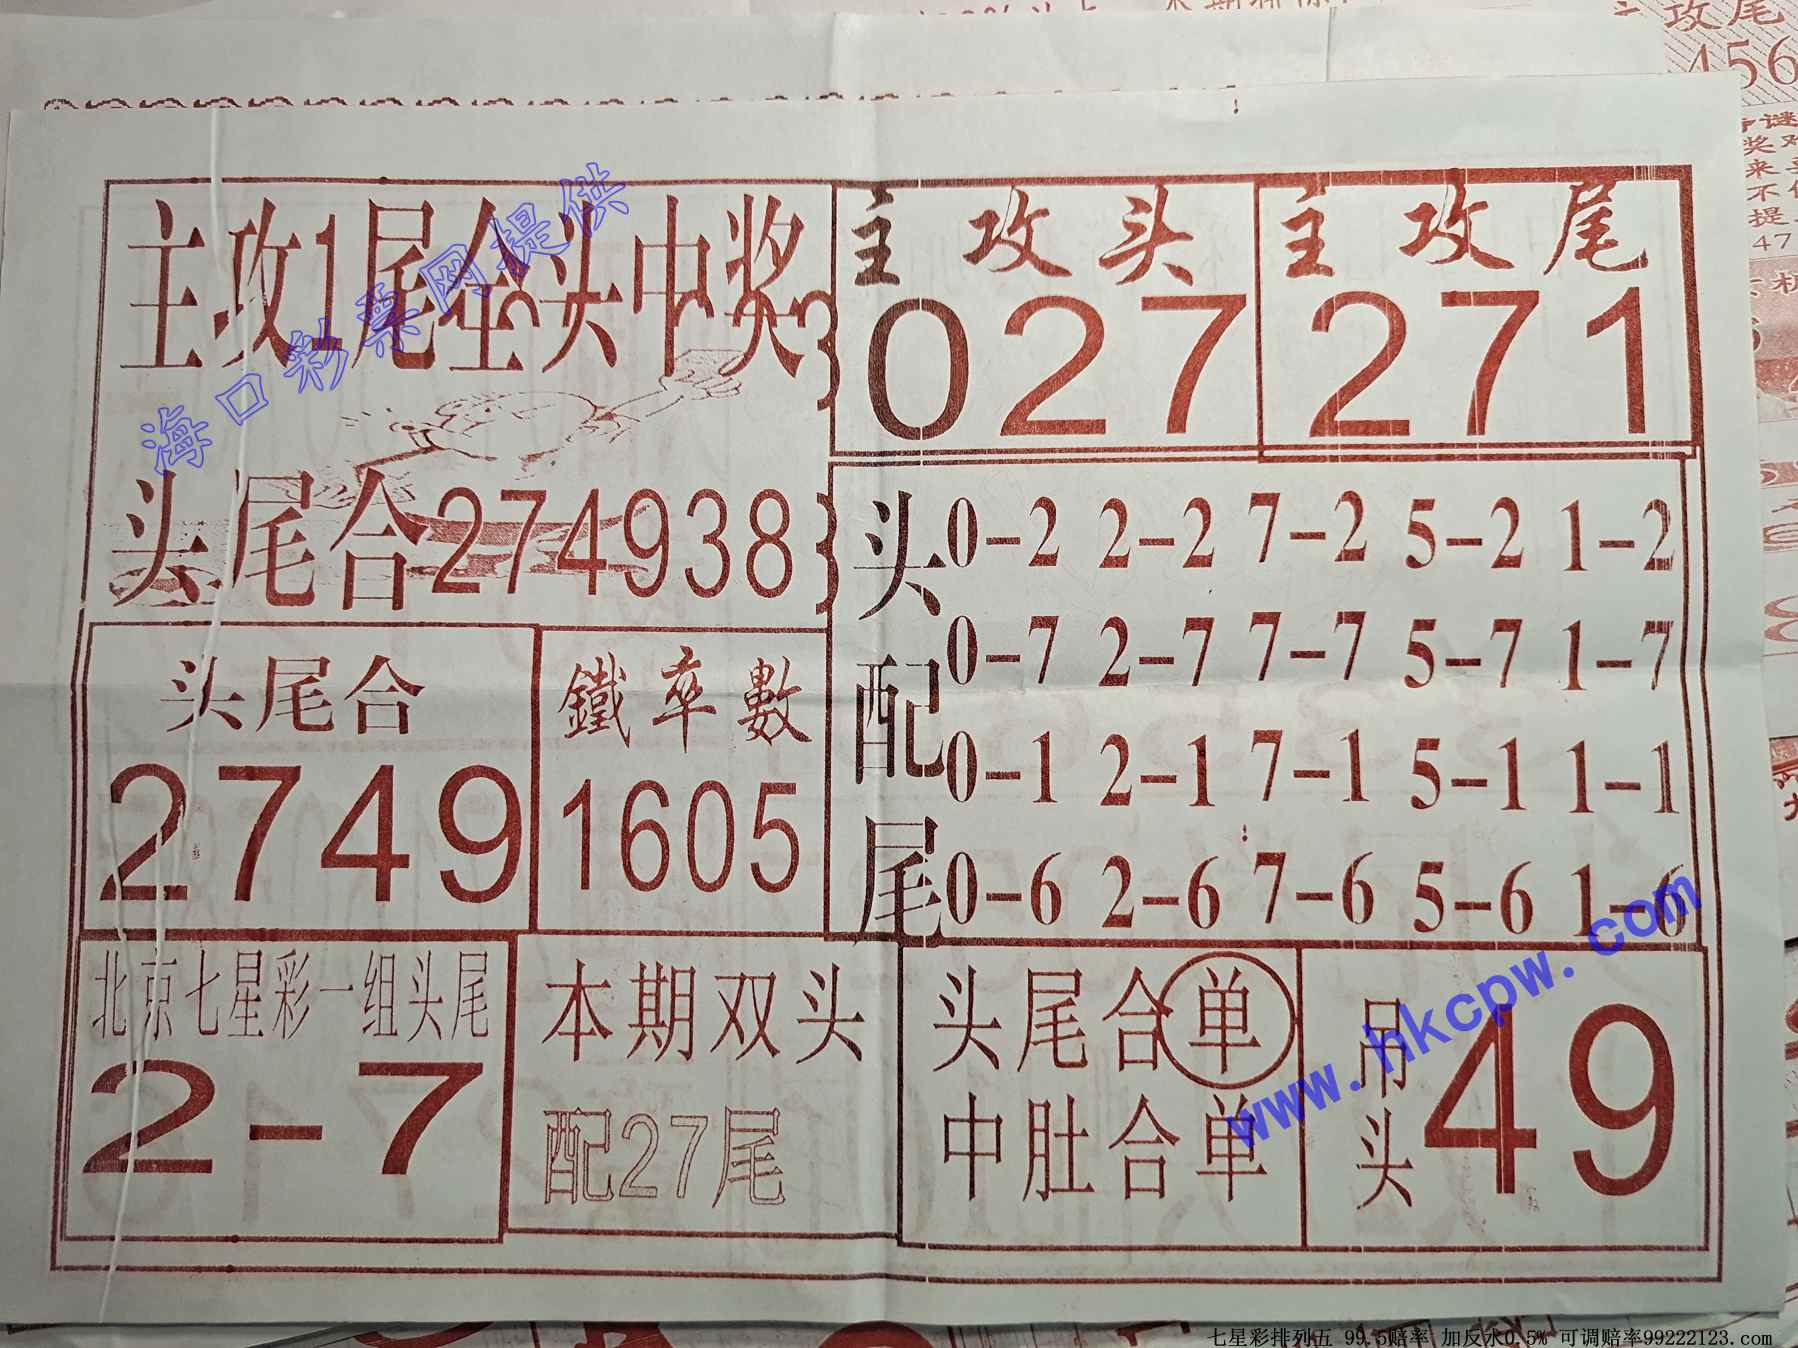 攻尾
456
主攻1尾全头中奖
主攻头
027
主攻尾
271
海口彩票网提供
头尾合274938
头配尾
0-2 2-2 7-2 5-2 1-2
0-7 2-7 7-7 5-7 1-7
0-1 2-1 7-1 5-1 1-1
0-6 2-6 7-6 5-6 1-6
头尾合
2749
鐵率數
1605
北京七星彩一组头尾
2-7
本期双头
配27尾
头尾合单
中肚合单
吊头
49
www.hkcpw.com
七星彩排列五 99.5赔率 加反水0.5% 可调赔率99222123.com